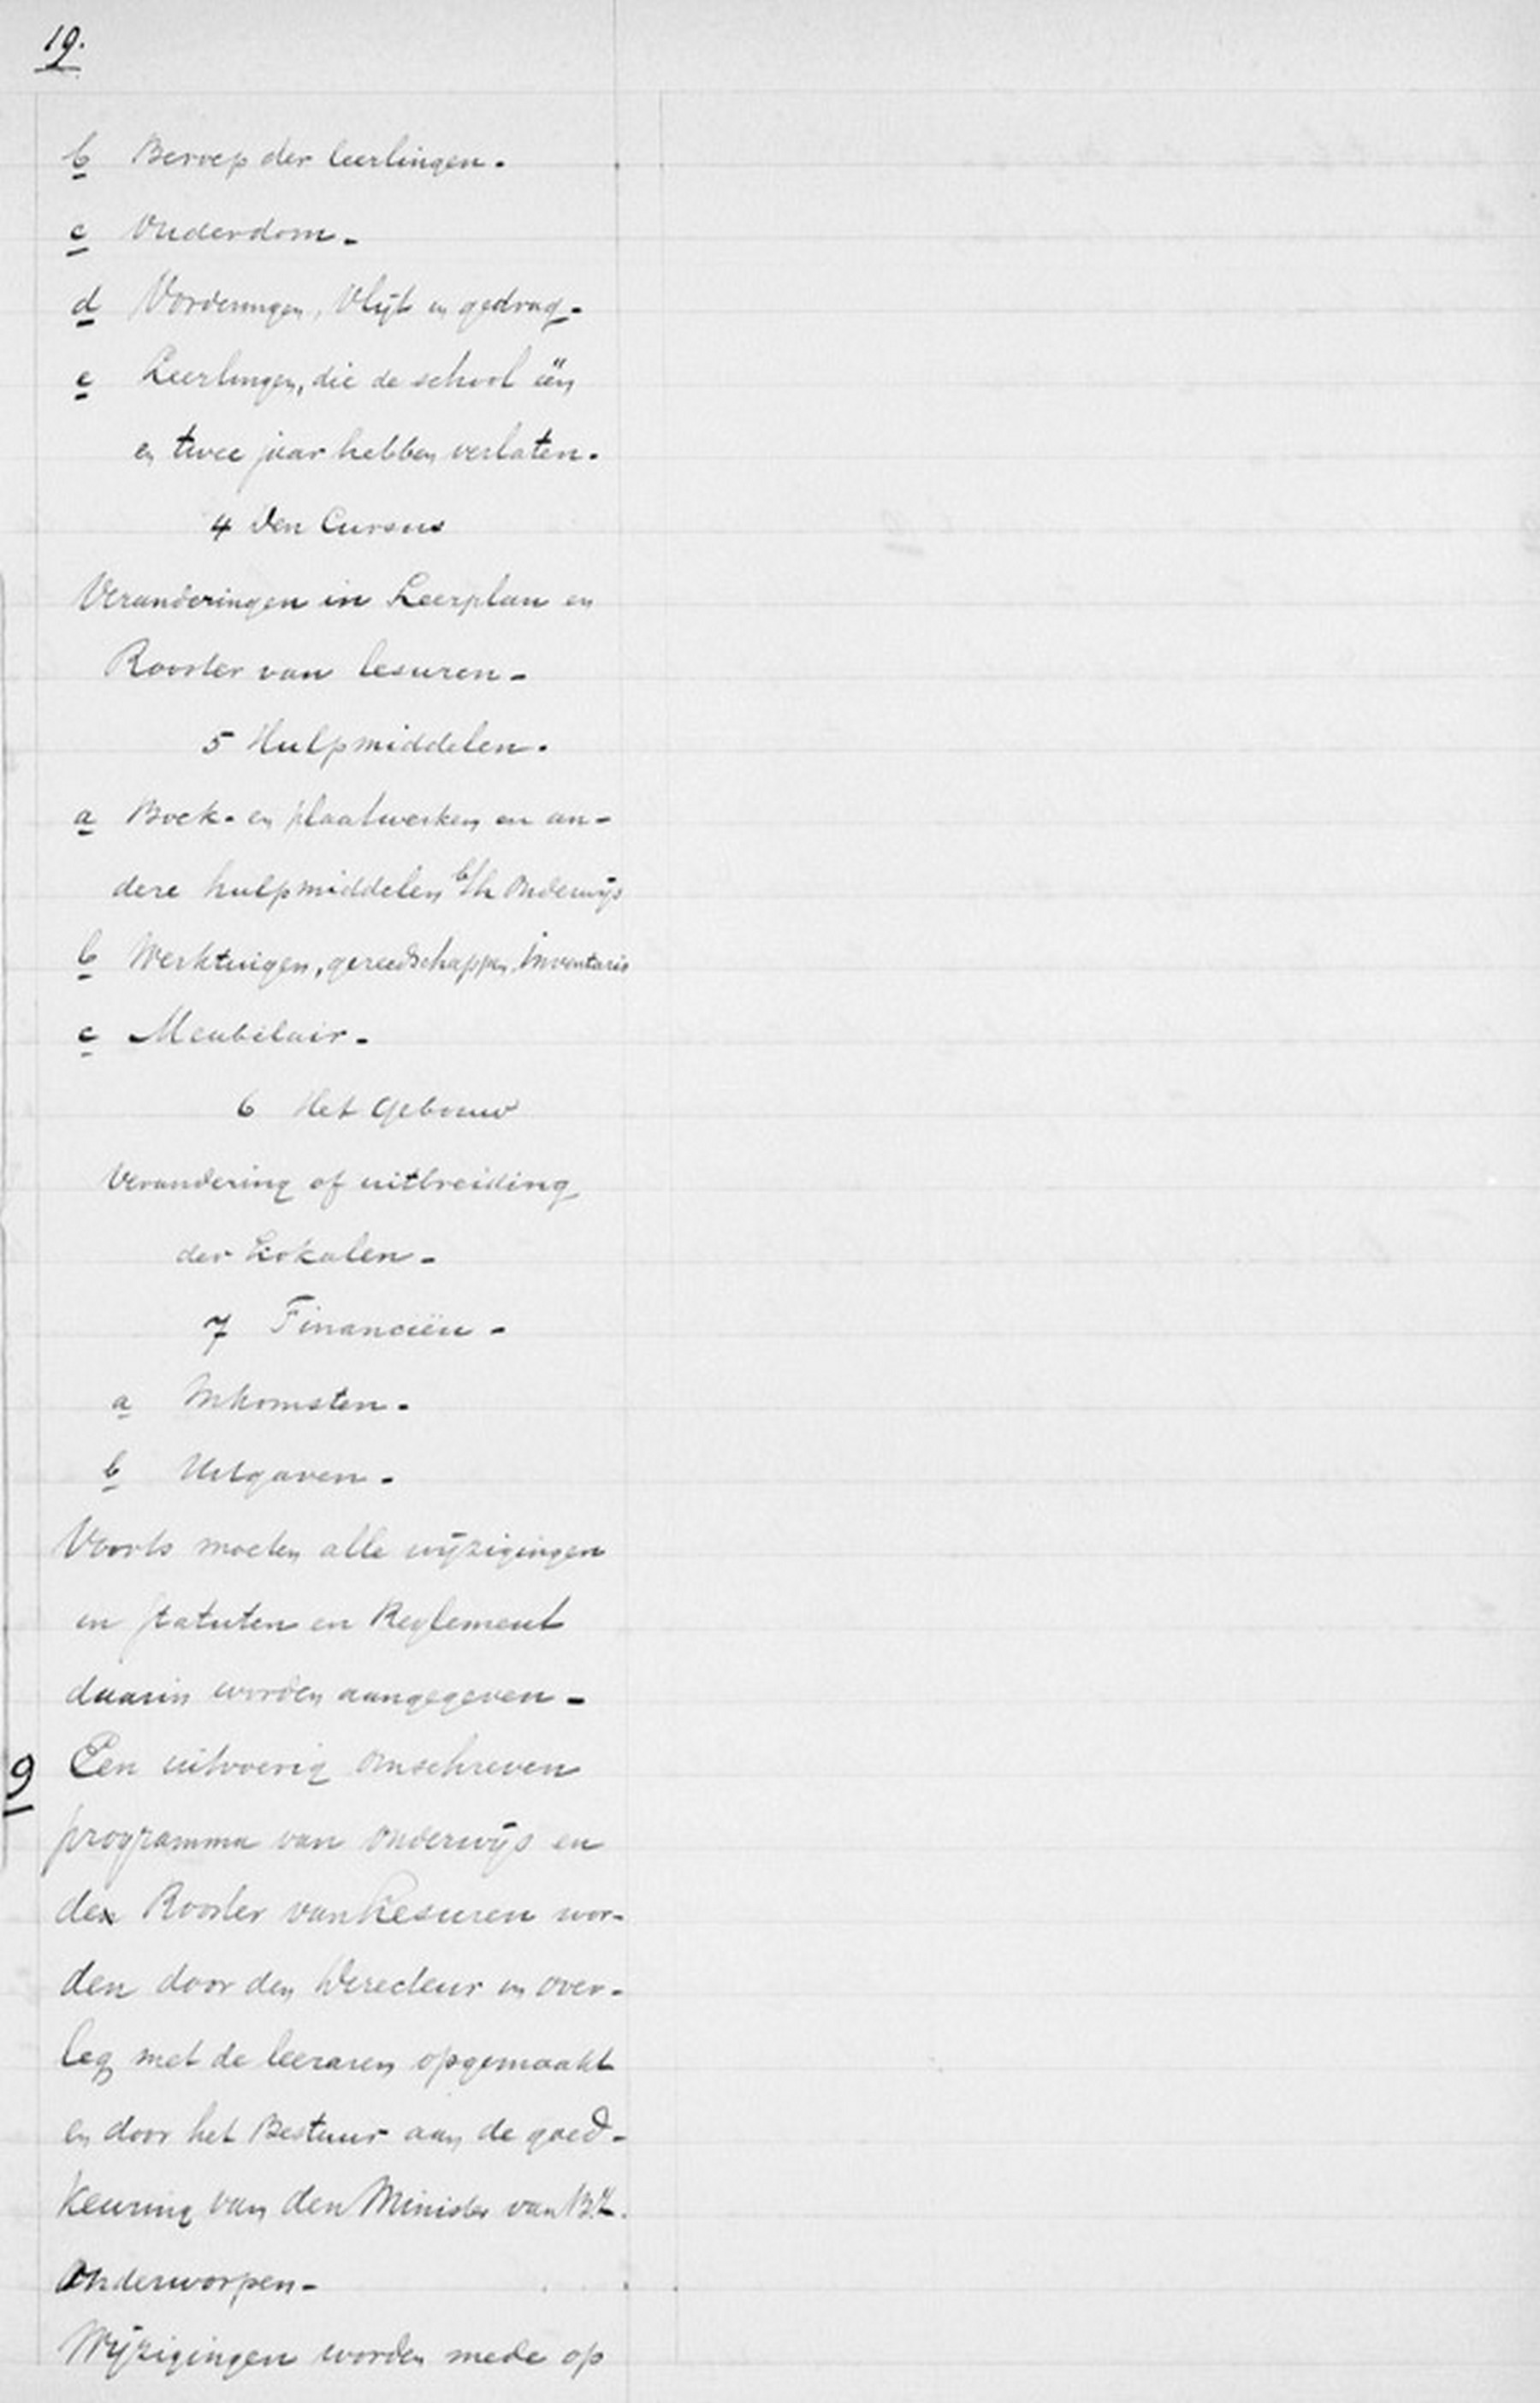 19.
b Beroep der leerlingen.
c Ouderdom.
d Vorderingen, Vlijt en gedrag.
e Leerlingen, die de school één
en twee jaar hebben verlaten.
4 Den Cursus
Veranderingen in Leerplan en
Rooster van lesuren.
5 Hulpmiddelen.
a Boek- en plaatwerken en an-
dere hulpmiddelen b/h Onderwijs
b Werktuigen, gereedschappen, Inventaris
c Meubelair.
6 Het Gebouw
Verandering of uitbreiding
der Lokalen.
7 Financiën.
a Inkomsten.
b Uitgaven.
Voorts moeten alle wijzigingen
in Statuten en Reglement
daarin worden aangegeven.
9 Een uitvoerig omschreven
programma van onderwijs en
den Rooster van Lesuren wor-
den door den Directeur in over-
leg met de leeraren opgemaakt
en door het Bestuur aan de goed-
keuring van den Minister van B.Z.
Onderworpen.
Wijzigingen worden mede op